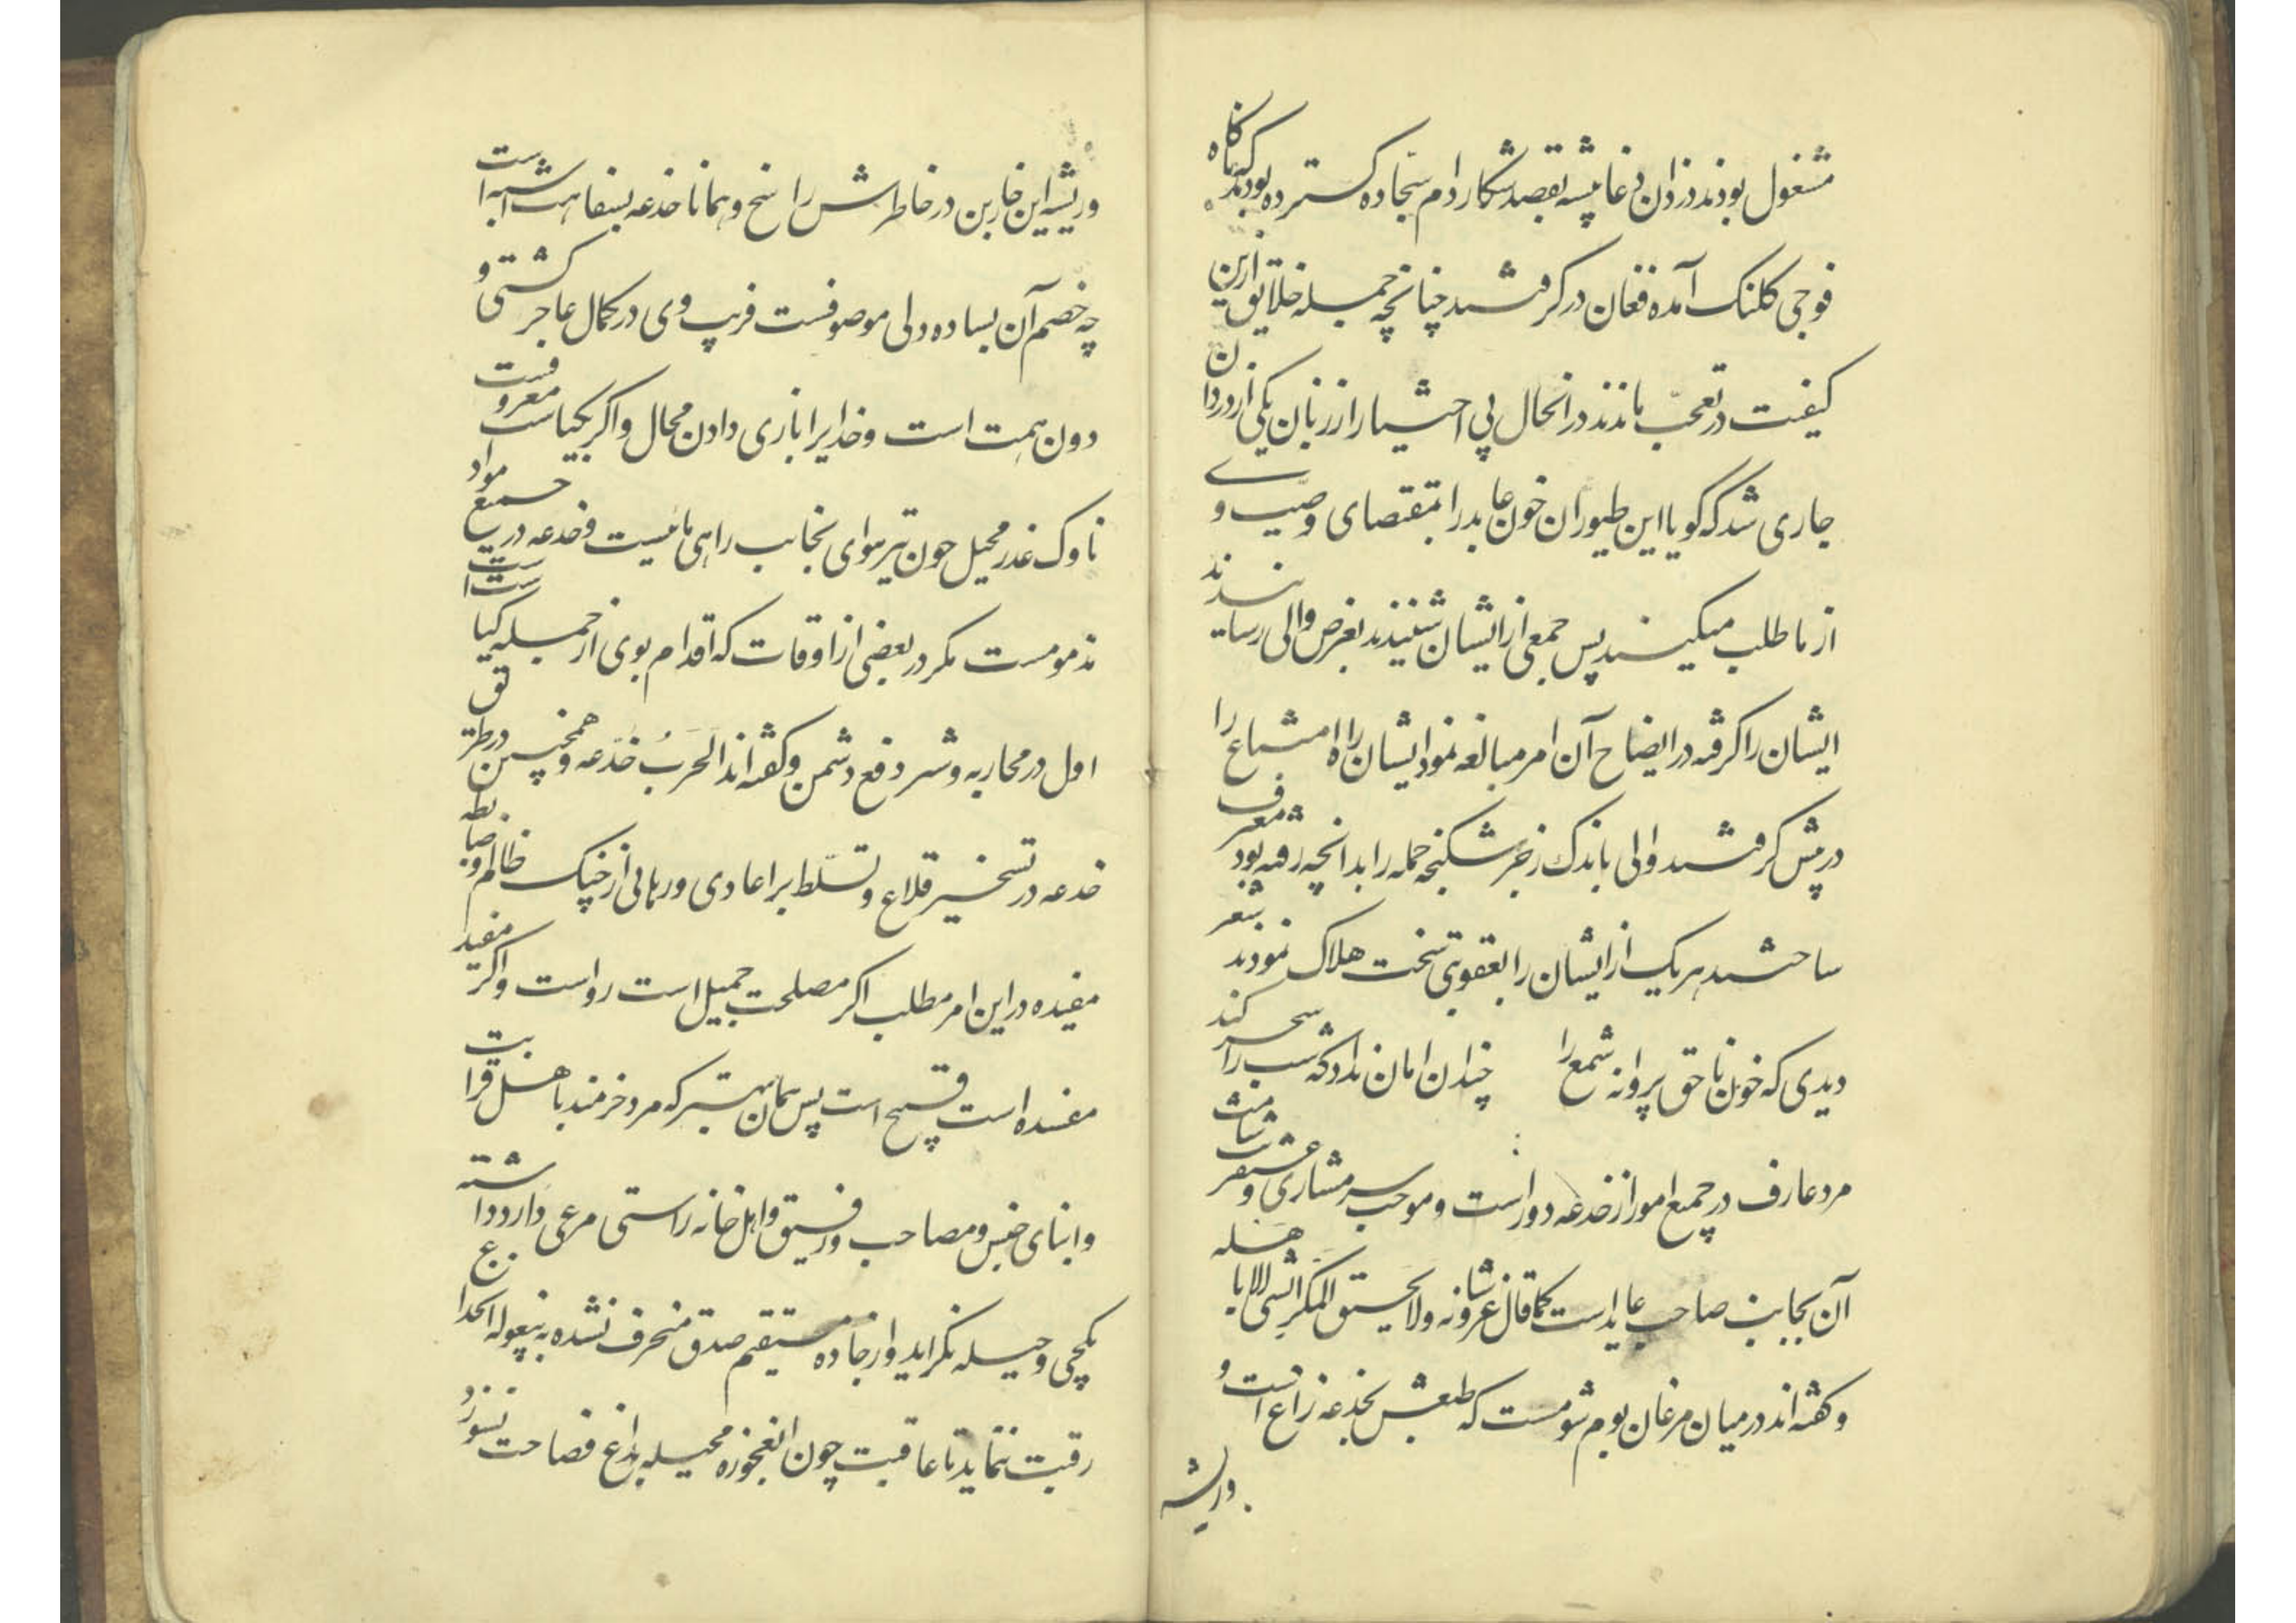 مشغول بودند دزدان دغا پیشه بقصد شکار دام سجاده گسترده بودند که ناگاه
فوجی کلنک آمده فغان در گرفتند چنانچه جمله خلایق ازین
کیفیت در تعجب ماندند درانحال بی اختیار از زبان یکی از دزدان
جاری شد که گویا این طیوران خون عابد را بمقتضای وصیت وی
از ما طلب میکنند پس جمعی از ایشان شنیدند بعرض والی رسانیدند
ایشان را گرفته در ایضاح آن امر مبالغه نمود ایشان راه امتناع را
در پیش گرفتند والی باندک زجر شکنجه جمله را بدانچه رفته بود معترف
ساختند هر یک از ایشان را بعقوبتی سخت هلاک نمودند شعر
دیدی که خون ناحق پروانه شمع را چندان امان نداد که شب را سحر کند
مرد عارف در جمیع امور از خدعه دور است و موجب
آن بجانب صاحب عاید است کما قال عز شانه ولا یحیق المکر السیئ الا باهله
و گفته اند در میان مرغان بوم شومست که طبعش بخدعه زاغ است و
وریشه
وریشه این خاربن در خاطرش راسخ و همانا خدعه بسفاهت اشبه است
چه خصم آن بساده دلی موصوفست فریب وی در کمال عاجز کشتی و
دون همت است و خدایرا بازی دادن محال و اگر بکیاست معروفست
ناوک غدر محیل چون تیر هوای بجانب راهی مائیست و خدعه در جمیع مواد
مذمومست مگر در بعضی از اوقات که اقدام بوی از جمله کیاست است
اول در محاربه و شر دفع دشمن و گفته اند الحرب خدعه و همچنین در طریق
خدعه در تسخیر قلاع و تسلط بر اعادی و رهائی از چنک ظالم و ضابطه
مفیده در این امر مطلب اگر مصلحت جمیل است رواست و اگر مفید
مفسده است قبیح است پس همان بهتر که مرد خرمند با اهل قرابت
و ابنای جنس و مصاحب و رفیق و اهل خانه راستی مرعی دارد داشته
بکجی و حیله نگراید و از جاده مستقیم صدق منحرف نشده به بیغوله خداع
رقبت ننماید تا عاقبت چون انعجوزه محیله بداغ فصاحت نسوزد